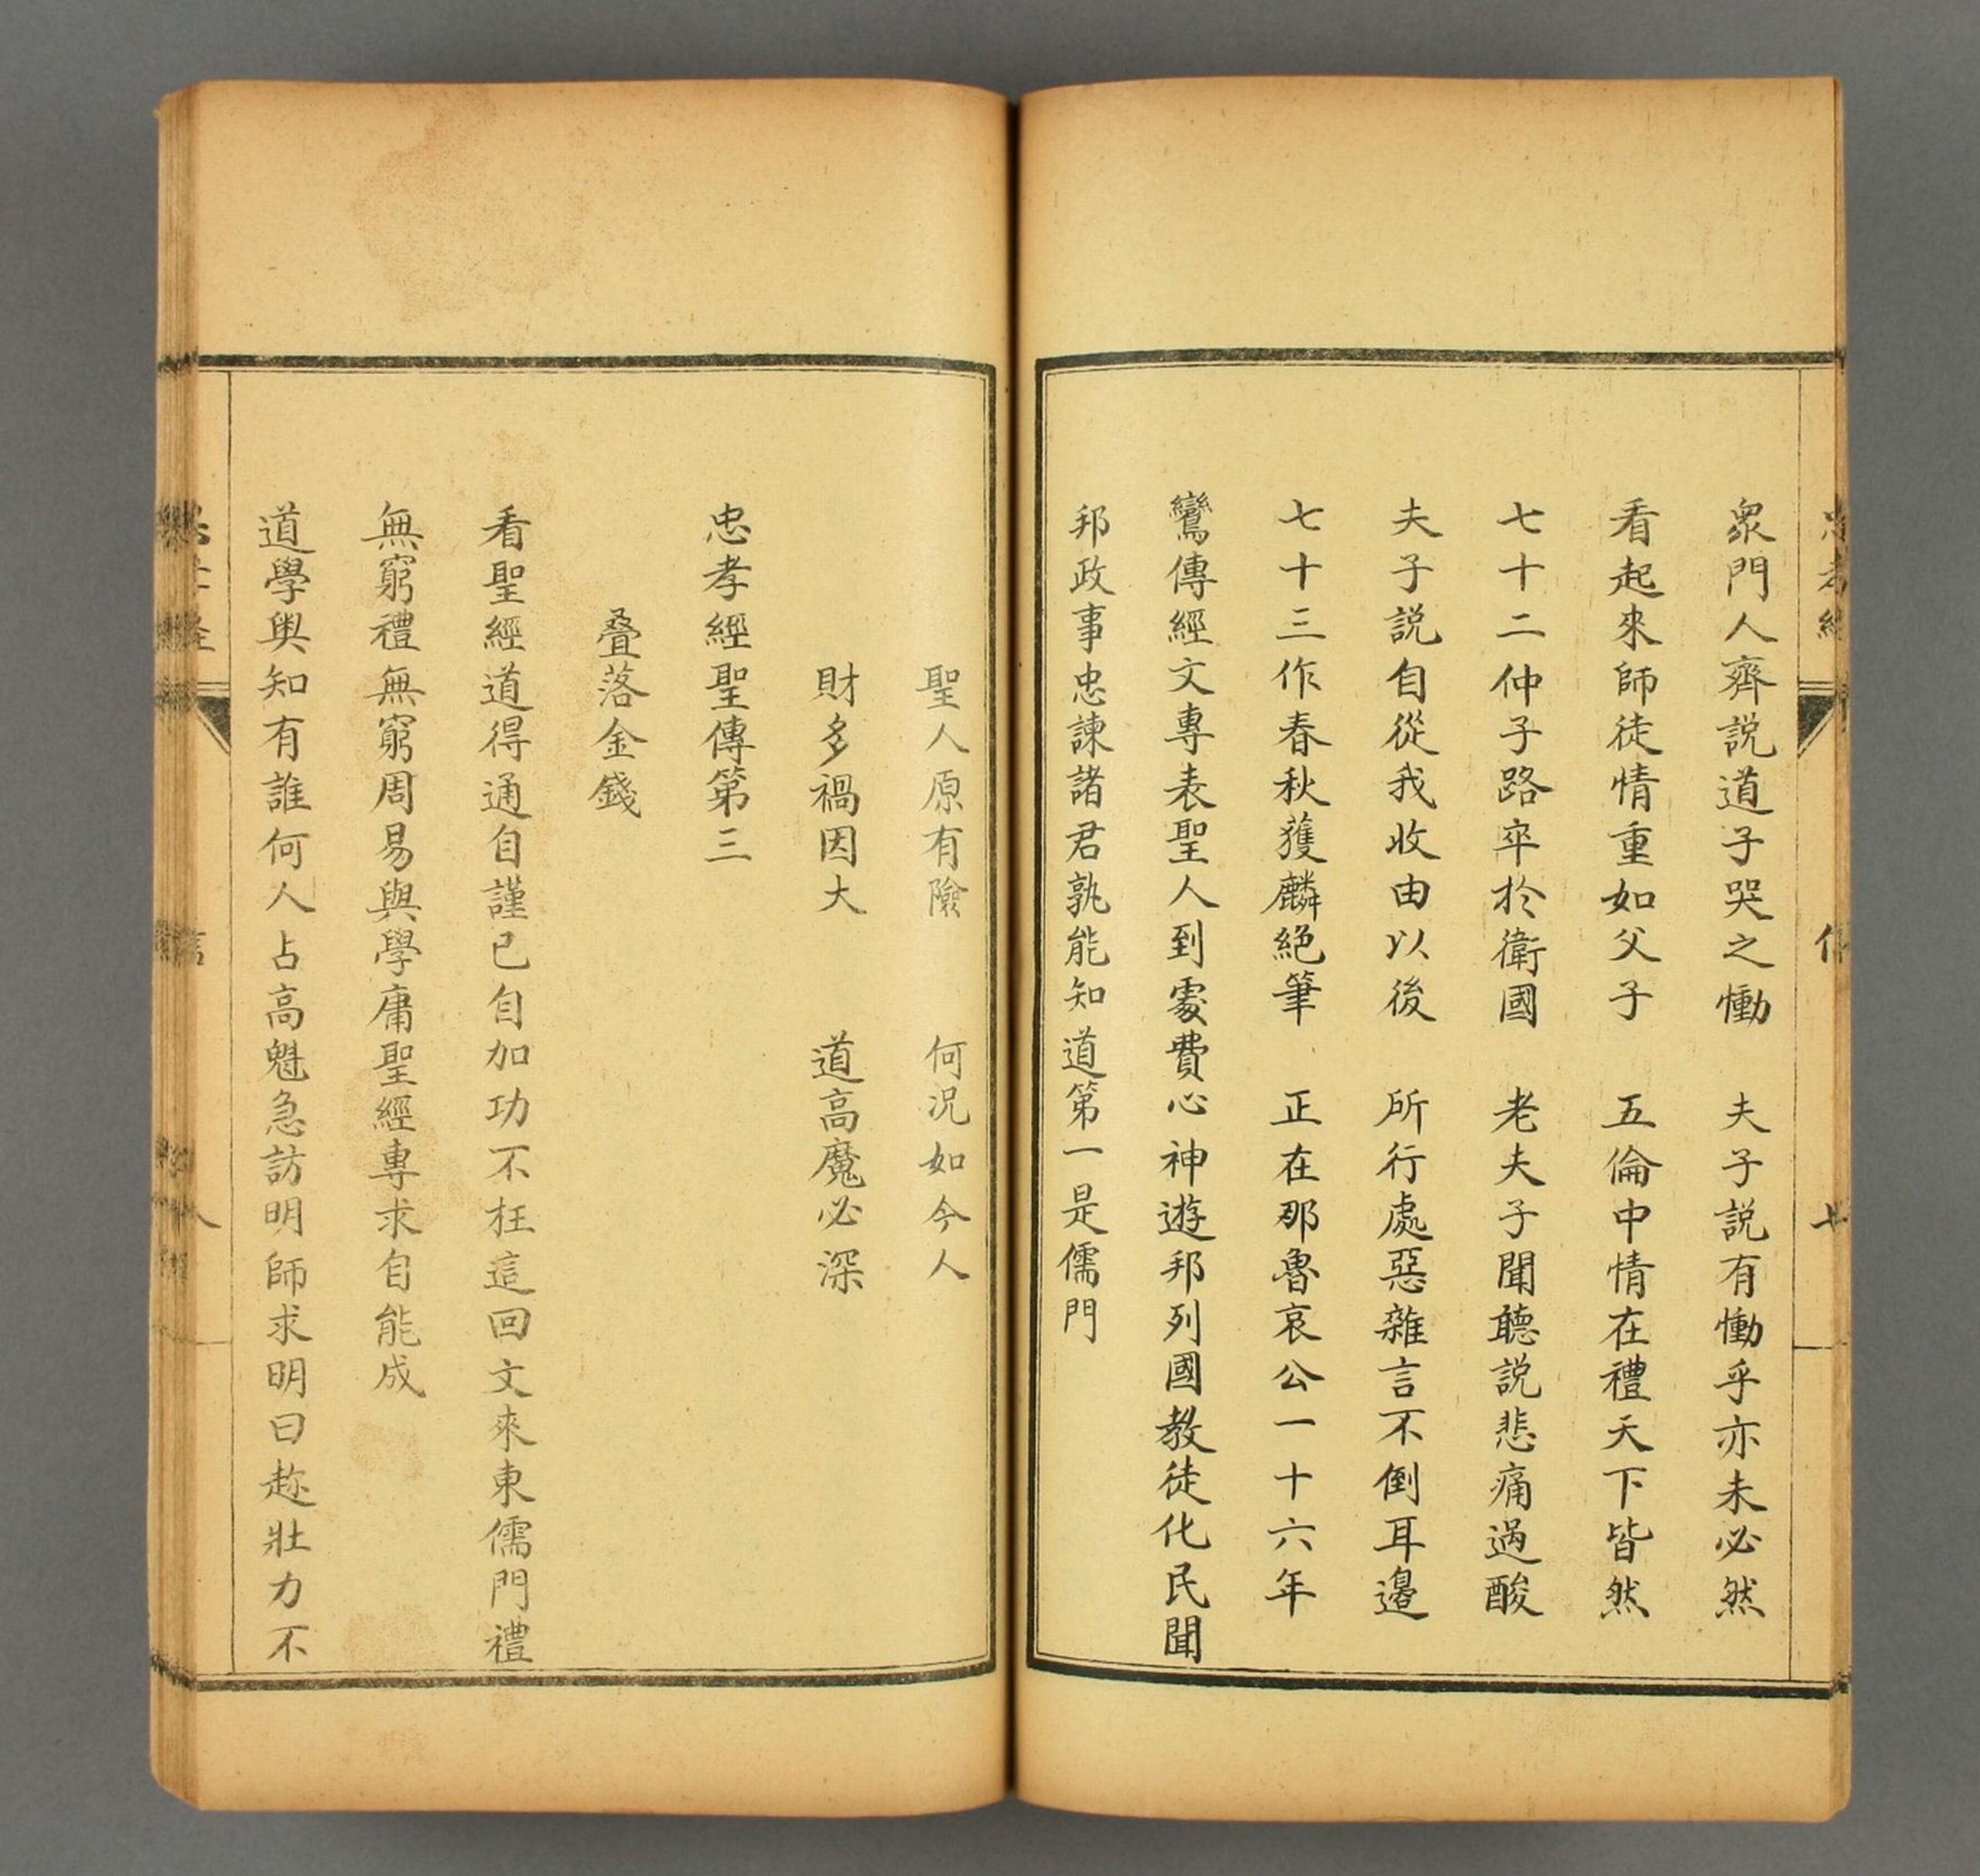 衆門人齊説道子哭之慟　夫子説有慟乎亦未必然
看起來師徒情重如父子　五倫中情在禮天下皆然
七十二仲子路卒於衛國　老夫子聞聽説悲痛過酸
夫子説自從我收由以後　所行處惡雜言不倒耳邊
七十三作春秋獲麟絕筆　正在那魯哀公一十六年
鸞傳經文專表聖人到處費心神遊邦列國教徒化民聞
邦政事忠諫諸君孰能知道第一是儒門
聖人原有險　何況如今人
財多禍因大　道高魔必深
忠孝經聖傳第三
叠落金錢
看聖經道得通自謹已自加功不枉這回文來東儒門禮
無窮禮無窮周易與學庸聖經專求自能成
道學與知有誰何人占高魁急訪明師求明曰趂壯力不